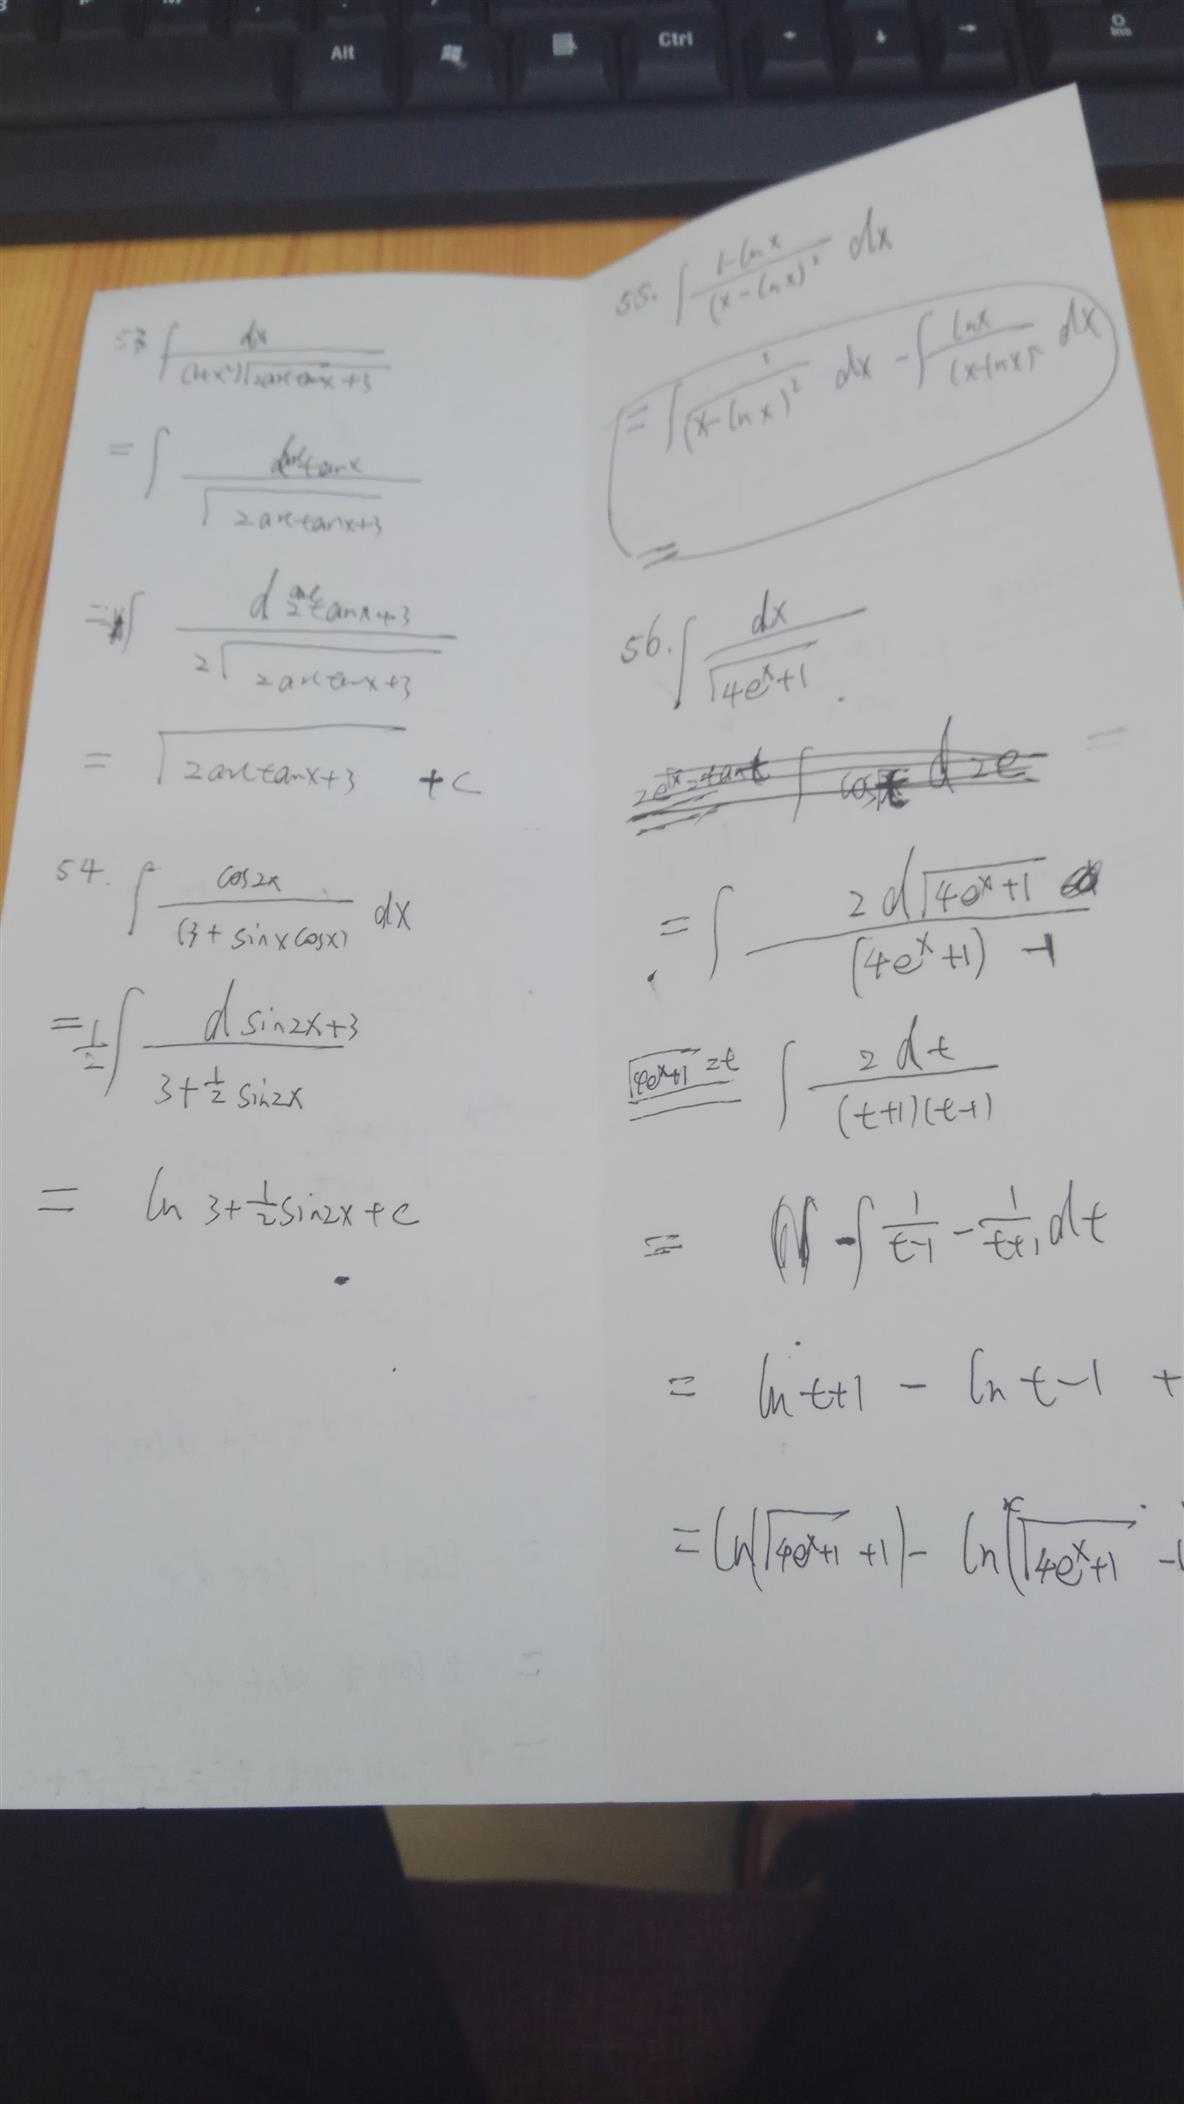 Alt
Ctrl
53 ∫ dx / (1+x²)√(2arctanx+3)
= ∫ darctanx / √(2arctanx+3)
= ∫ d 2arctanx+3 / 2√(2arctanx+3)
= √(2arctanx+3) + c
54. ∫ cos2x / (3+sinxcosx) dx
= 1/2 ∫ d sin2x+3 / 3+1/2 sin2x
= ln 3+1/2 sin2x+c
55. ∫ 1-lnx / (x-lnx)² dx
= ∫ 1 / (x-lnx)² dx - ∫ lnx / (x-lnx)² dx
=
56. ∫ dx / √(4eˣ+1)
=
= ∫ 2d√(4eˣ+1) / (4eˣ+1) -1
√(4eˣ+1) =t ∫ 2dt / (t+1)(t-1)
= -∫ 1/t-1 - 1/t+1 dt
= ln t+1 - ln t-1 +
= ln(√(4eˣ+1) +1) - ln(√(4eˣ+1) -1